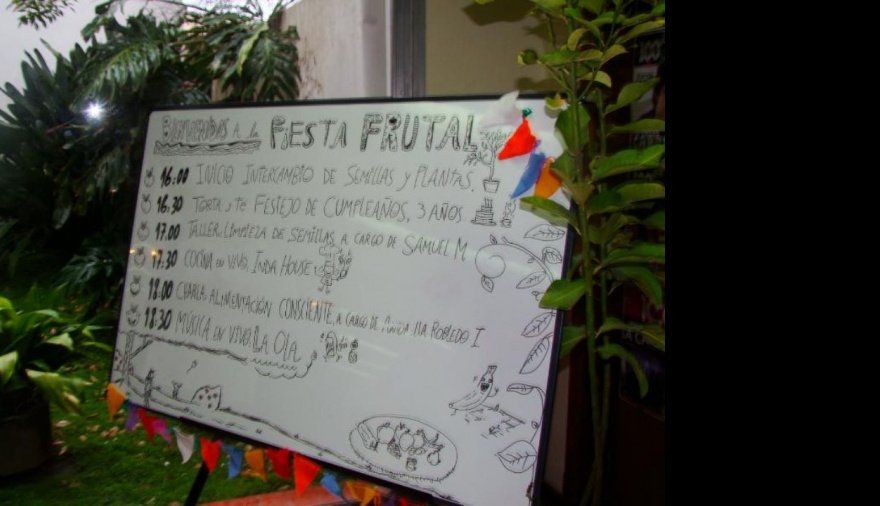 BIENVENIDOS A LA FIESTA FRUTAL
16:00 INICIO INTERCAMBIO DE SEMILLAS Y PLANTAS.
16:30 TORTA Y TÉ FESTEJO DE CUMPLEAÑOS, 3 AÑOS
17:00 TALLER LIMPIEZA DE SEMILLAS, A CARGO DE SAMUEL M
17:30 COCINA EN VIVO, INDA HOUSE
18:00 CHARLA ALIMENTACIÓN CONSCIENTE, A CARGO DE ROBLEDO I
18:30 MÚSICA EN VIVO, LA OLA